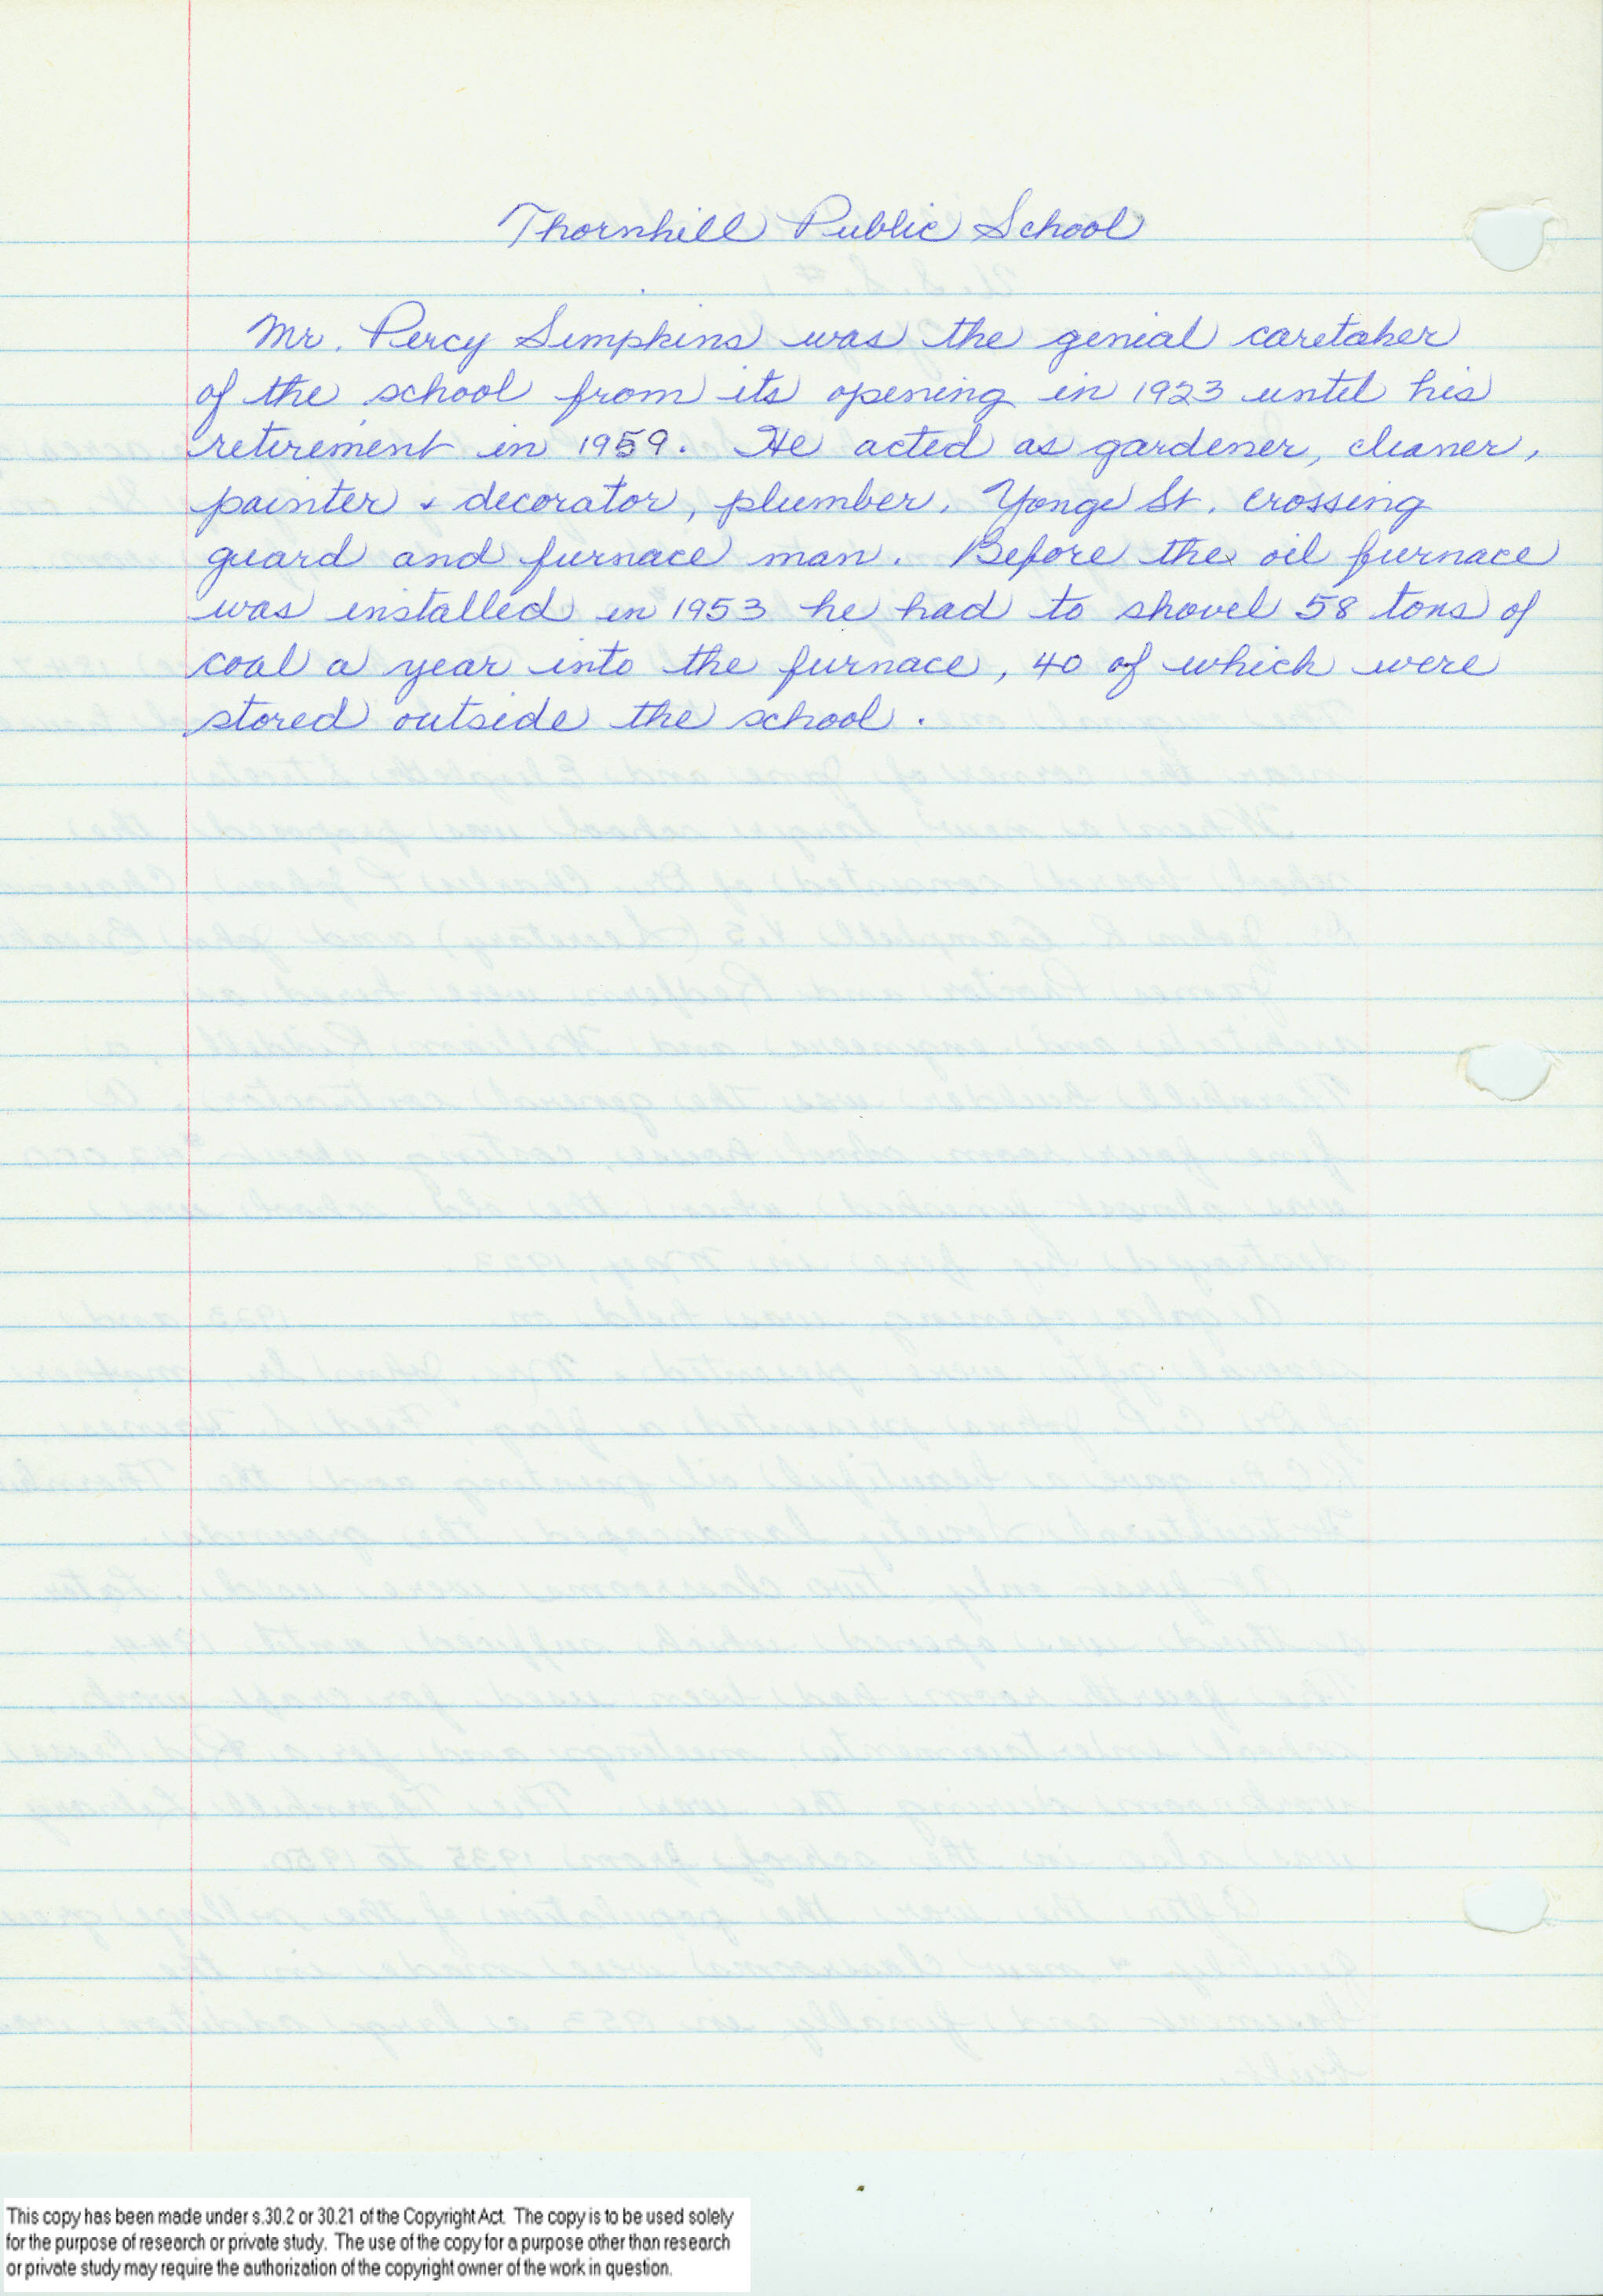 Thornhill Public School
Mr. Percy Simpkins was the genial caretaker
of the school from its opening in 1923 until his
retirement in 1959. He acted as gardener, cleaner,
painter & decorator, plumber, Yonge St. crossing
guard and furnace man. Before the oil furnace
was installed in 1953 he had to shovel 58 tons of
coal a year into the furnace, 40 of which were
stored outside the school.
This copy has been made under s.30.2 or 30.21 of the Copyright Act. The copy is to be used solely
for the purpose of research or private study. The use of the copy for a purpose other than research
or private study may require the authorization of the copyright owner of the work in question.